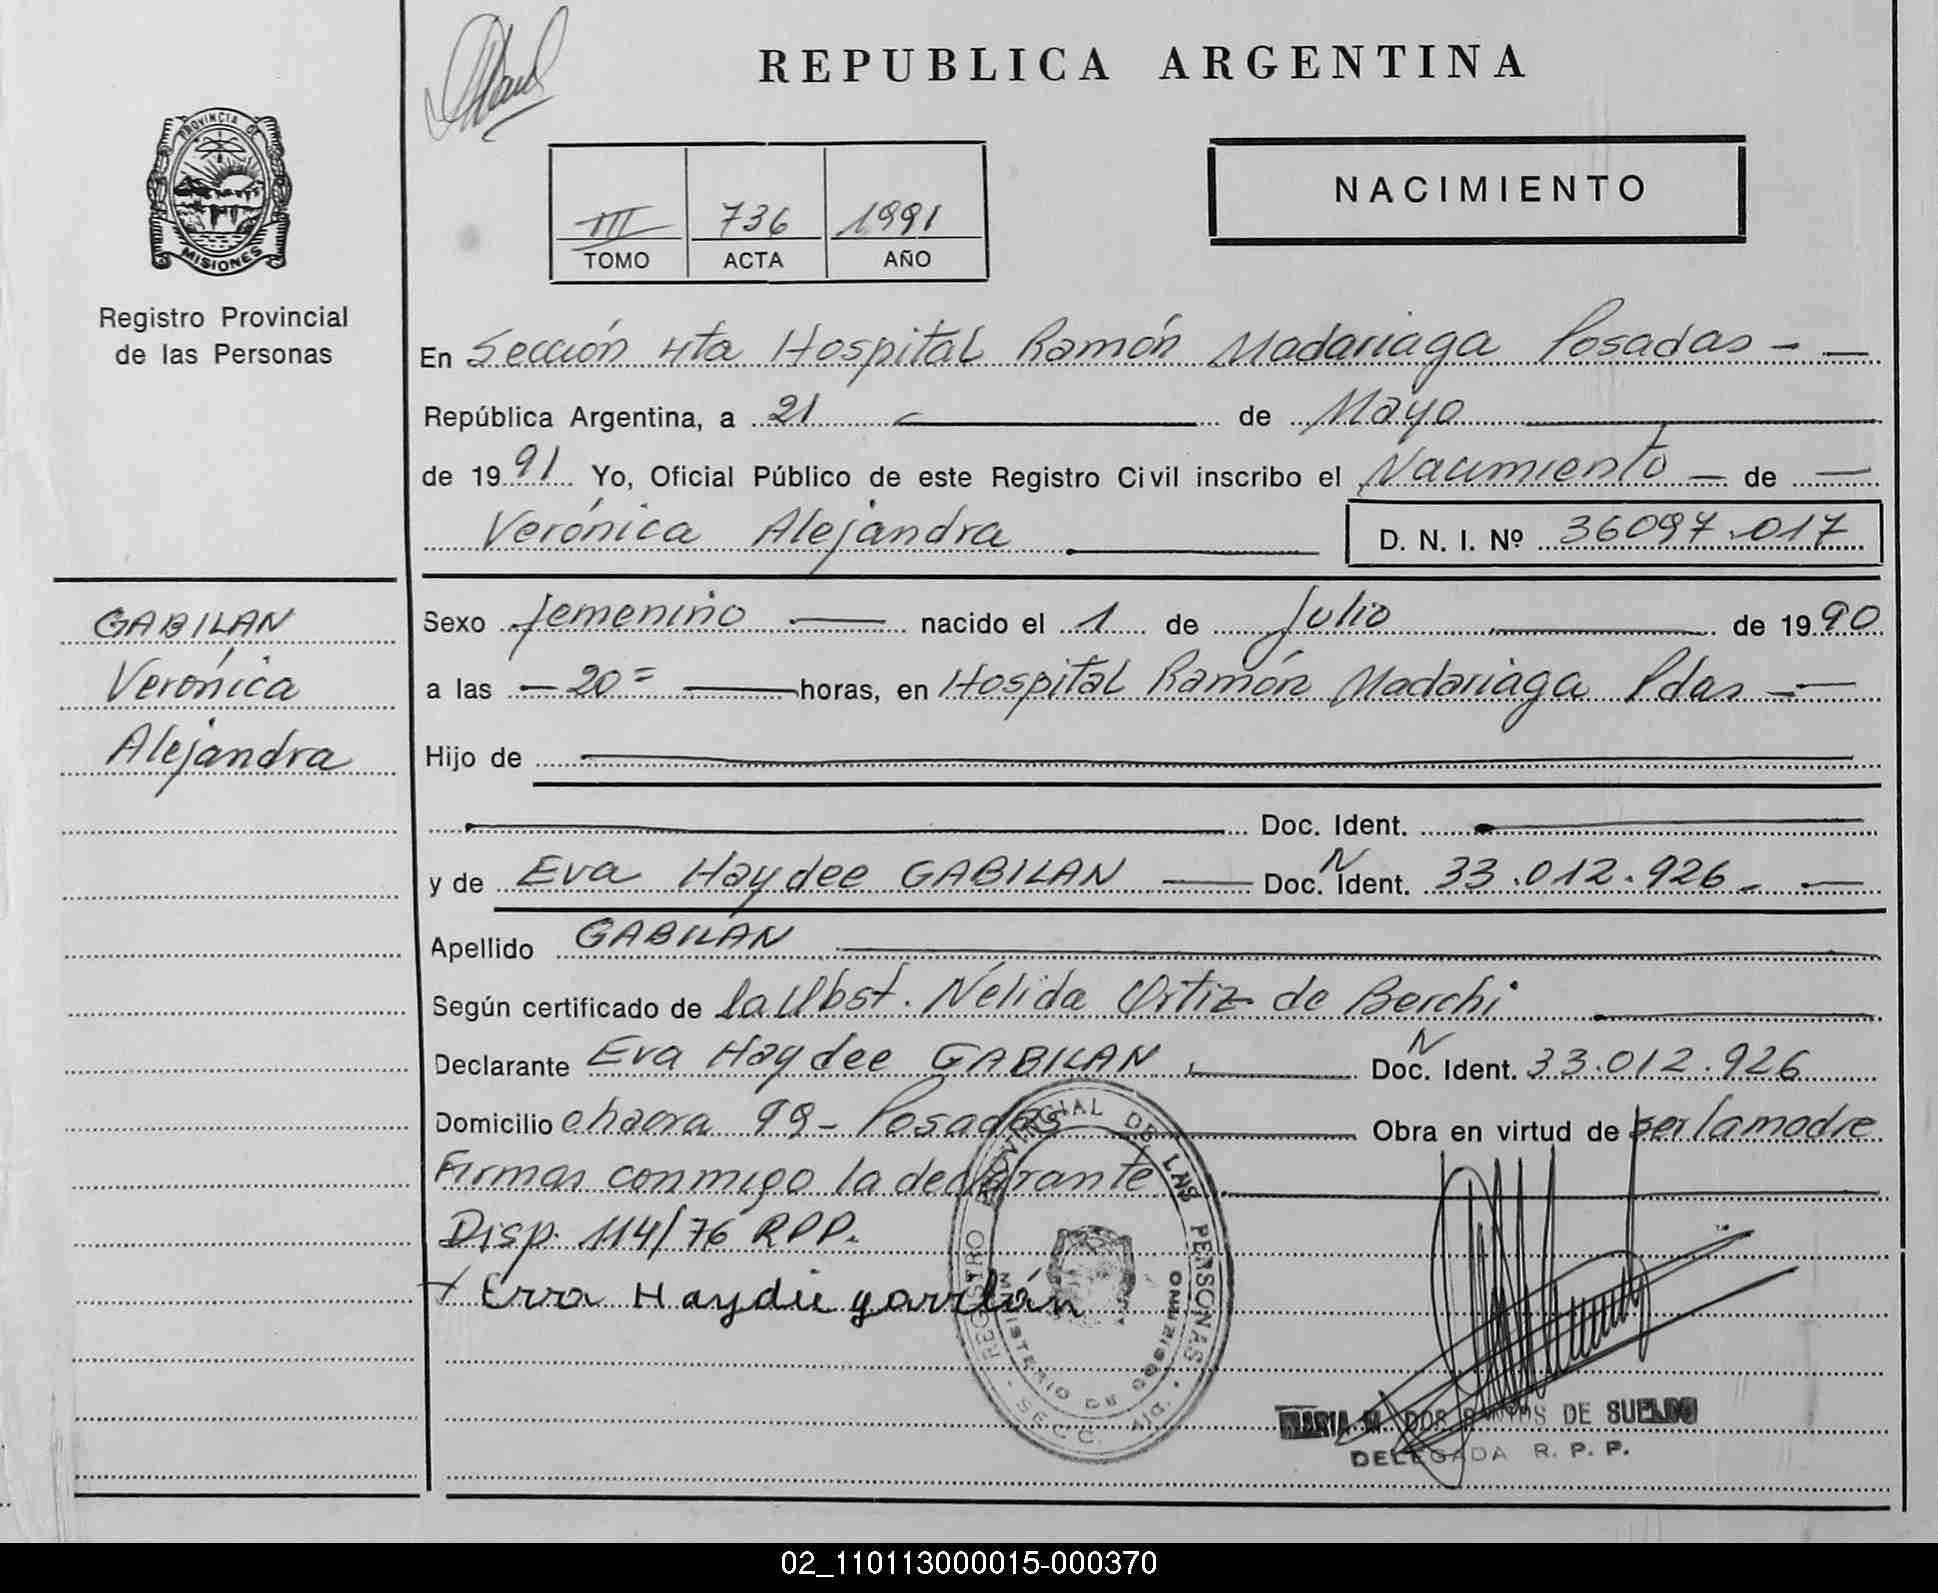 REPUBLICA ARGENTINA
PROVINCIA DE
MISIONES
Registro Provincial
de las Personas
III 736 1991
TOMO ACTA AÑO
NACIMIENTO
En Sección 4ta Hospital Ramón Madariaga Posadas - -
República Argentina, a 21 de Mayo
de 1991 Yo, Oficial Público de este Registro Civil inscribo el Nacimiento - de -
Verónica Alejandra
D. N. I. Nº 36097.017
GABILAN
Verónica
Alejandra
Sexo femenino nacido el 1 de Julio de 1990
a las - 20 = horas, en Hospital Ramón Madariaga Pdas - -
Hijo de
Doc. Ident.
y de Eva Haydee GABILAN Doc. N Ident. 33.012.926. -
Apellido GABILAN
Según certificado de la Obst. Nélida Ortiz de Berchi
Declarante Eva Haydee GABILAN Doc. N Ident. 33.012.926
Domicilio chacra 99 - Posadas Obra en virtud de ser la madre
Firmas conmigo la declarante
Disp. 114/76 RPP.
REGISTRO PROVINCIAL DE LAS PERSONAS
MINISTERIO DE GOBIERNO
SECC. 4ta.
MARIA M. DOS SANTOS DE SUELDO
DELEGADA R. P. P.
02_110113000015-000370